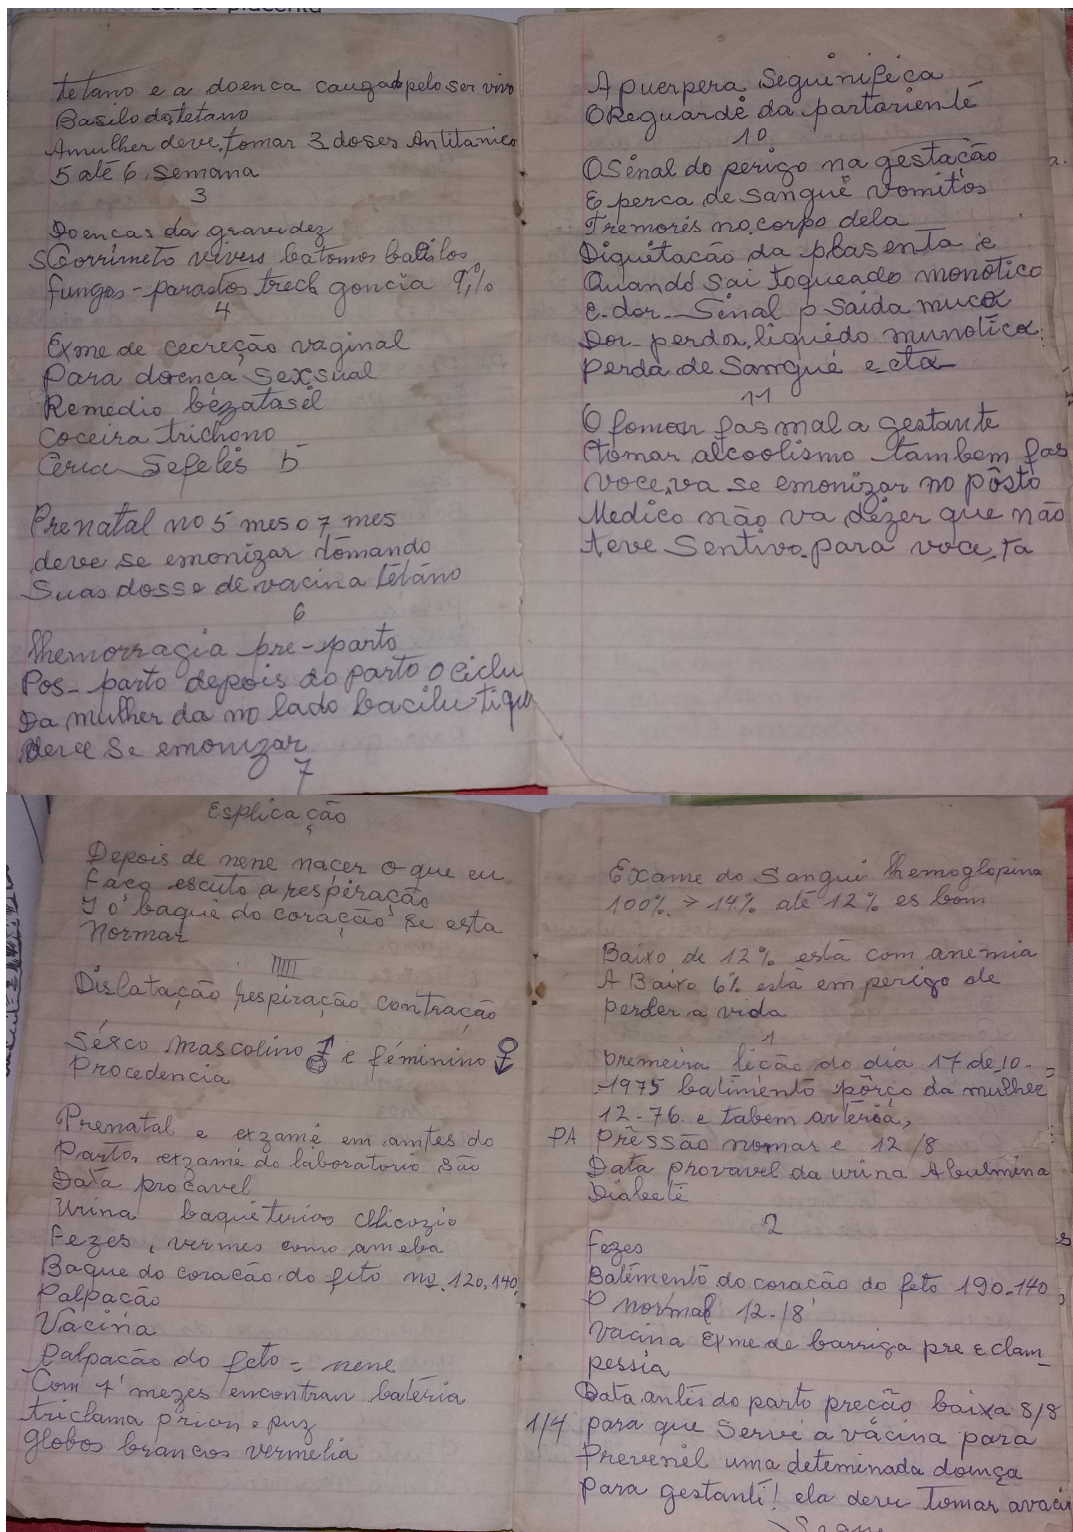 tetano e a doenca cauzado pelo ser vivo
Basilo do tetano
A mulher deve tomar 3 doses Antitanico
5 até 6 semana
3
Doencas da gravidez
Corrimeto viveis batomos bacilos
fungos - parastos trech goncia 9%
4
Exme de cecreção vaginal
Para doenca sexsual
Remedio bézatasél
Coceira trichono
Ceria Sefelés 5
Prenatal no 5 mes o 7 mes
deve se emonizar tomando
Suas dosse de vacina tétâno
6
hemorragia pre-parto
Pos-parto depois do parto o ciclu
Da mulher da no lado bacilu tiqu
deve se emonizar
7
A puerpera Seguinifica
O Reguardê da partariente
10
O Sinal do perigo na gestação
E perca de sangue vomitos
Tremores no corpo dela
Diquitacão da plasenta e
Quando sai toqueado monotico
e dor - Sinal p saida muca
Dor - perda liquido munotica
perda de Sangue ecta
11
O fomar fas mal a gestante
tomar alcoolismo tambem fas
voce va se emonizar no pôsto
Medico não va dizer que não
teve Sentivo para voce, ta
Esplicação
Depois de nene nacer o que eu
faço escuto a respiração
I o baque do coração se esta
normar
Dislatação respiração contração
Séxco mascolino ♂ e féminino ♀
Procedencia
Prenatal e exzame em amtes do
Parto, exzame do laboratorio são
Data procavel
Urina baquéterias Clicozio
Fezes, vermes como ameba
Baque do coração do feto no 120,140
Palpação
Vacina
Palpacão do feto = nene
Com 7 mezes encontran batéria
triclama prion e puz
globos brancos vermelia
Exame do Sangui hemoglopina
100% > 14% até 12% es bom
Baixo de 12% está com anemia
A Baixo 6% está em perigo de
perder a vida
1
premeira lição do dia 17 de 10-
1975 batimento pôrço da mulher
12-76 e tabem artéria,
PA Prêssão nomar e 12/8
Data provavel da urina Abulmina
Diabetê
2
Fezes
Batimento do coracão do feto 190-140
P normal 12-/8
Vacina Exme de barriga pre eclam-
pessia
Data antes do parto preção baixa 8/8
1/4 para que Serve a vácina para
Prevenil uma deteminada doença
para gestante! ela deve tomar avaci
Segue